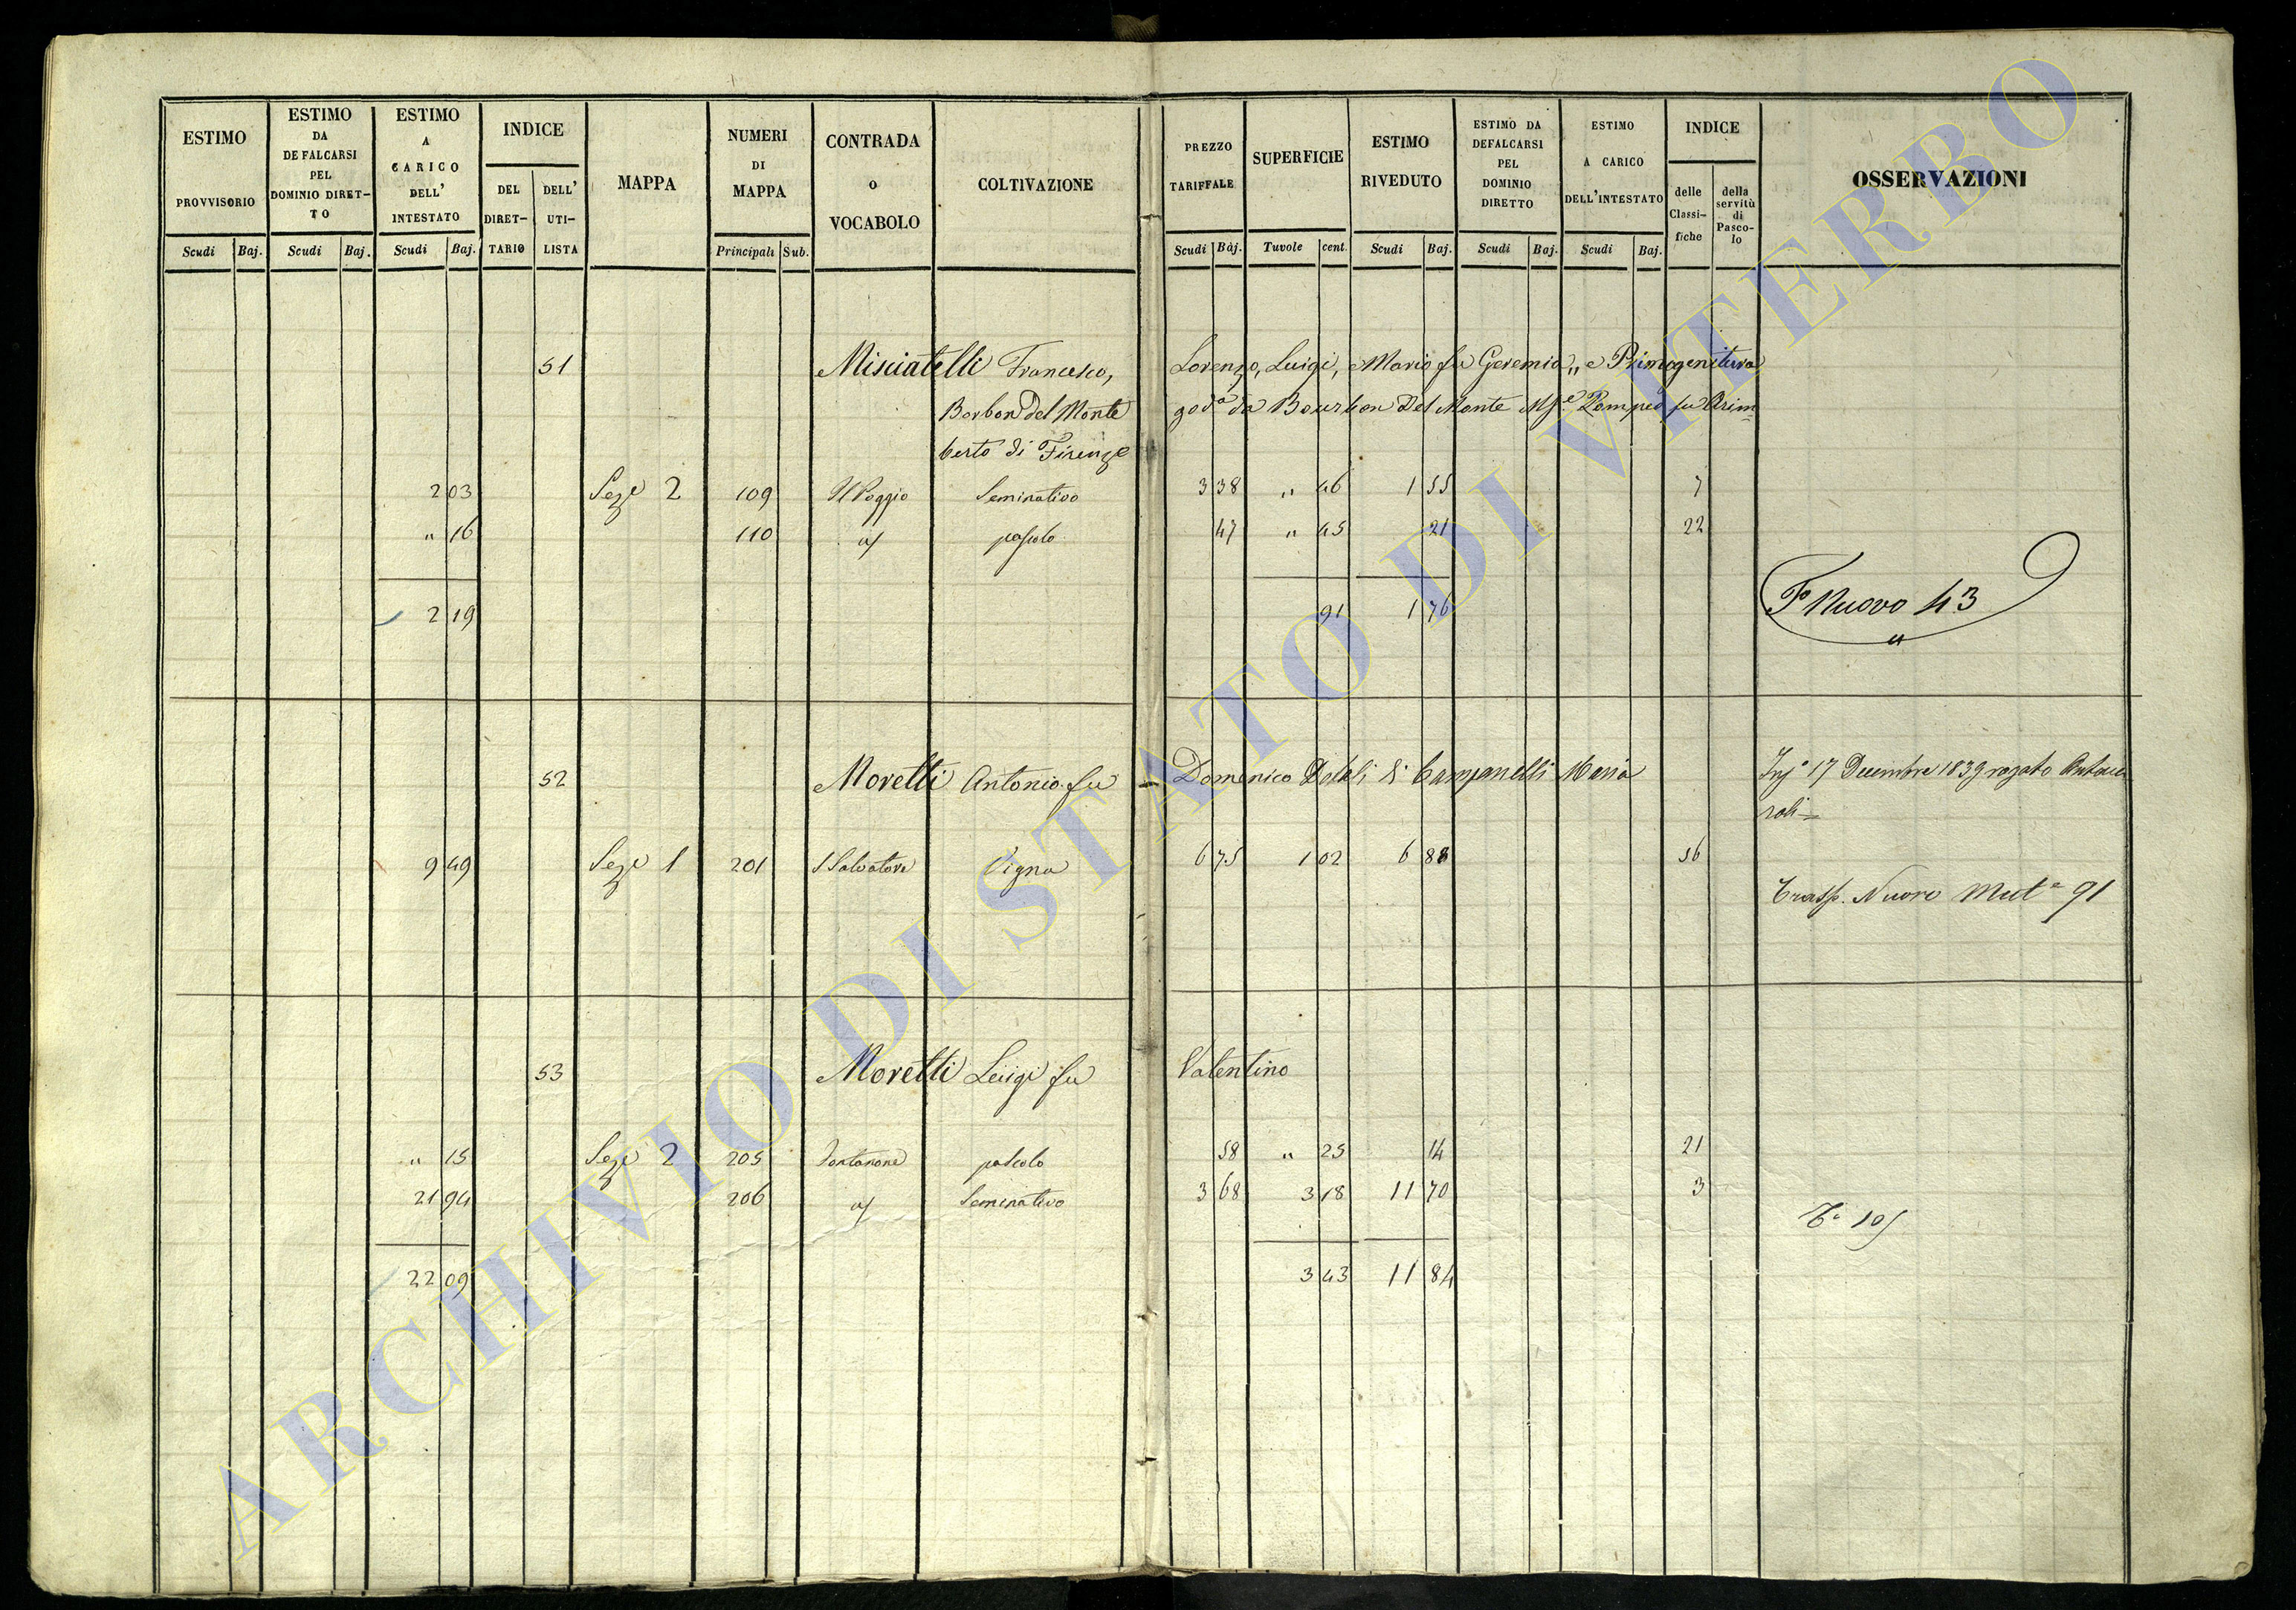 ESTIMO PROVVISORIO
Scudi Baj.
ESTIMO DA DEFALCARSI PEL DOMINIO DIRET-TO
Scudi Baj.
ESTIMO A CARICO DELL' INTESTATO
Scudi Baj.
INDICE
DEL DIRET-TARIO
DELL' UTI-LISTA
MAPPA
NUMERI DI MAPPA
Principali Sub.
CONTRADA o VOCABOLO
COLTIVAZIONE
PREZZO TARIFFALE
Scudi Baj.
SUPERFICIE
Tavole cent.
ESTIMO RIVEDUTO
Scudi Baj.
ESTIMO DA DEFALCARSI PEL DOMINIO DIRETTO
Scudi Baj.
ESTIMO A CARICO DELL'INTESTATO
Scudi Baj.
INDICE
delle Classi-fiche
della servitù di Pasco-lo
OSSERVAZIONI
51 Misciatelli Francesco, Lorenzo, Luigi, e Mario fu Geremia,, e Primogenitura
Borbon del Monte god.a da Bourbon Del Monte Pompeo fu Rim
berto di Firenze
2 03 Seze 2 109 Il Poggio Seminativo 3 38 " 46 1 55 7
" 16 110 pascolo 47 " 45 21 22
2 19 91 1 76
F.o Nuovo 43
52 Moretti Antonio fu Domenico Dotali di Campanelli Maria
17 Decembre 1839 rogato
9 49 Seze 1 201 S Salvatore Vigna 6 75 1 02 6 88 56
Trasp. Nuovo Mut.e 91
53 Moretti Luigi fu Valentino
" 15 Seze 2 205 Fontanone pascolo 58 " 25 14 21
21 94 206 Seminativo 3 68 3 18 11 70 3
22 09 3 43 11 84
ARCHIVIO DI STATO DI VITERBO